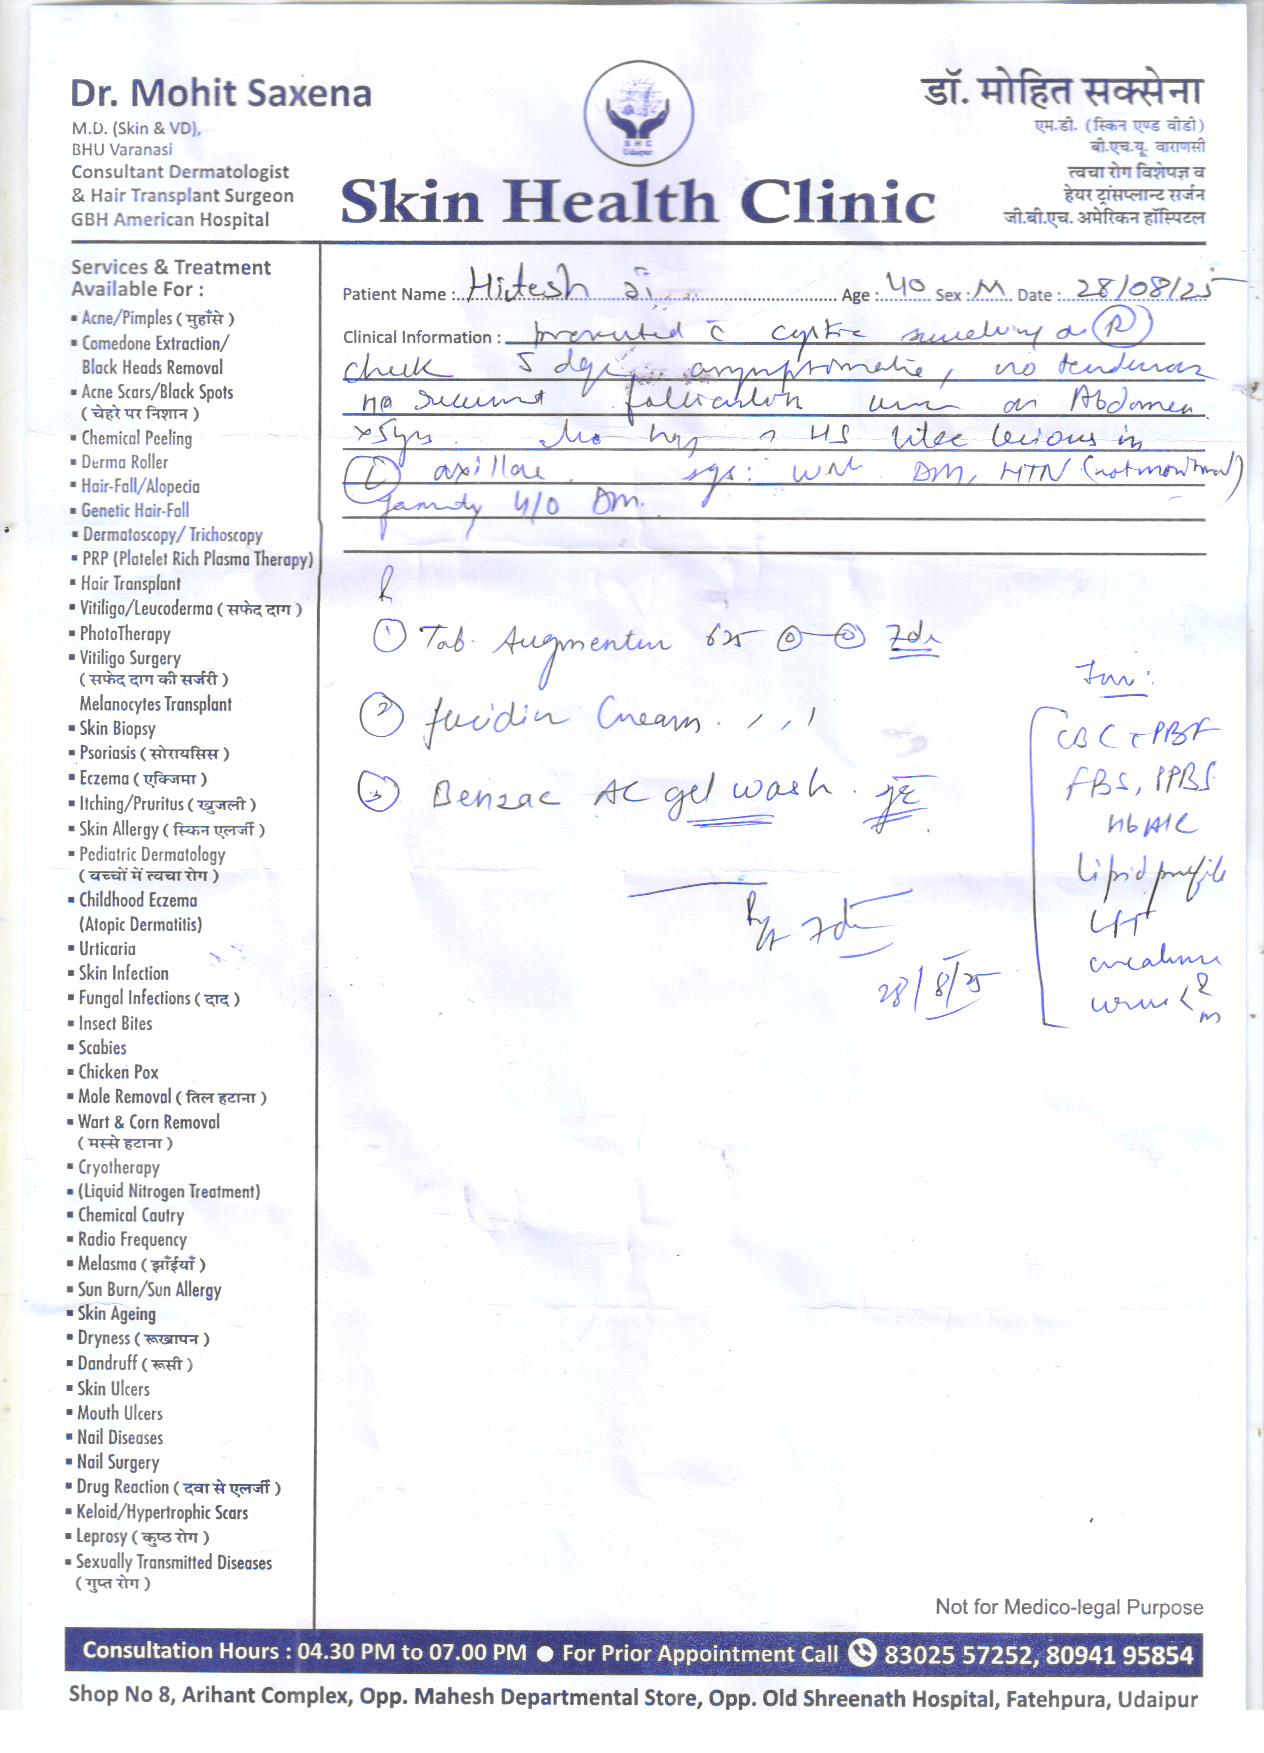 Dr. Mohit Saxena
M.D. (Skin & VD),
BHU Varanasi
Consultant Dermatologist
& Hair Transplant Surgeon
GBH American Hospital
SHC
Udaipur
Skin Health Clinic
डॉ. मोहित सक्सेना
एम.डी. (स्किन एण्ड वीडी)
बी.एच.यू. वाराणसी
त्वचा रोग विशेषज्ञ व
हेयर ट्रांसप्लान्ट सर्जन
जी.बी.एच. अमेरिकन हॉस्पिटल
Services & Treatment
Available For :
▪ Acne/Pimples ( मुहाँसे )
▪ Comedone Extraction/
Black Heads Removal
▪ Acne Scars/Black Spots
( चेहरे पर निशान )
▪ Chemical Peeling
▪ Derma Roller
▪ Hair-Fall/Alopecia
▪ Genetic Hair-Fall
▪ Dermatoscopy/ Trichoscopy
▪ PRP (Platelet Rich Plasma Therapy)
▪ Hair Transplant
▪ Vitiligo/Leucoderma ( सफेद दाग )
▪ PhotoTherapy
▪ Vitiligo Surgery
( सफेद दाग की सर्जरी )
Melanocytes Transplant
▪ Skin Biopsy
▪ Psoriasis ( सोरायसिस )
▪ Eczema ( एक्जिमा )
▪ Itching/Pruritus ( खुजली )
▪ Skin Allergy ( स्किन एलर्जी )
▪ Pediatric Dermatology
( बच्चों में त्वचा रोग )
▪ Childhood Eczema
(Atopic Dermatitis)
▪ Urticaria
▪ Skin Infection
▪ Fungal Infections ( दाद )
▪ Insect Bites
▪ Scabies
▪ Chicken Pox
▪ Mole Removal ( तिल हटाना )
▪ Wart & Corn Removal
( मस्से हटाना )
▪ Cryotherapy
▪ (Liquid Nitrogen Treatment)
▪ Chemical Cautry
▪ Radio Frequency
▪ Melasma ( झाँईयाँ )
▪ Sun Burn/Sun Allergy
▪ Skin Ageing
▪ Dryness ( रूखापन )
▪ Dandruff ( रूसी )
▪ Skin Ulcers
▪ Mouth Ulcers
▪ Nail Diseases
▪ Nail Surgery
▪ Drug Reaction ( दवा से एलर्जी )
▪ Keloid/Hypertrophic Scars
▪ Leprosy ( कुष्ठ रोग )
▪ Sexually Transmitted Diseases
( गुप्त रोग )
Patient Name : Hitesh Ji Age : 40 Sex : M Date : 28/08/25
Clinical Information : presented c̄ cystic swelling on (R)
cheek 5 days asymptomatic, no tenderness
no recurrent on Abdomen
x5yrs. HS like lesions in
(L) axillae. DM, HTN
family H/O DM.
① Tab. Augmentin 625 7d
② fucidin Cream
③ Benzac AC gel wash.
7d
28/8/25
Inv:
CBC c̄ PBF
FBS, PPBS
HbA1C
Lipid profile
LFT
creatinine
urine < R
m
Not for Medico-legal Purpose
Consultation Hours : 04.30 PM to 07.00 PM ● For Prior Appointment Call 83025 57252, 80941 95854
Shop No 8, Arihant Complex, Opp. Mahesh Departmental Store, Opp. Old Shreenath Hospital, Fatehpura, Udaipur